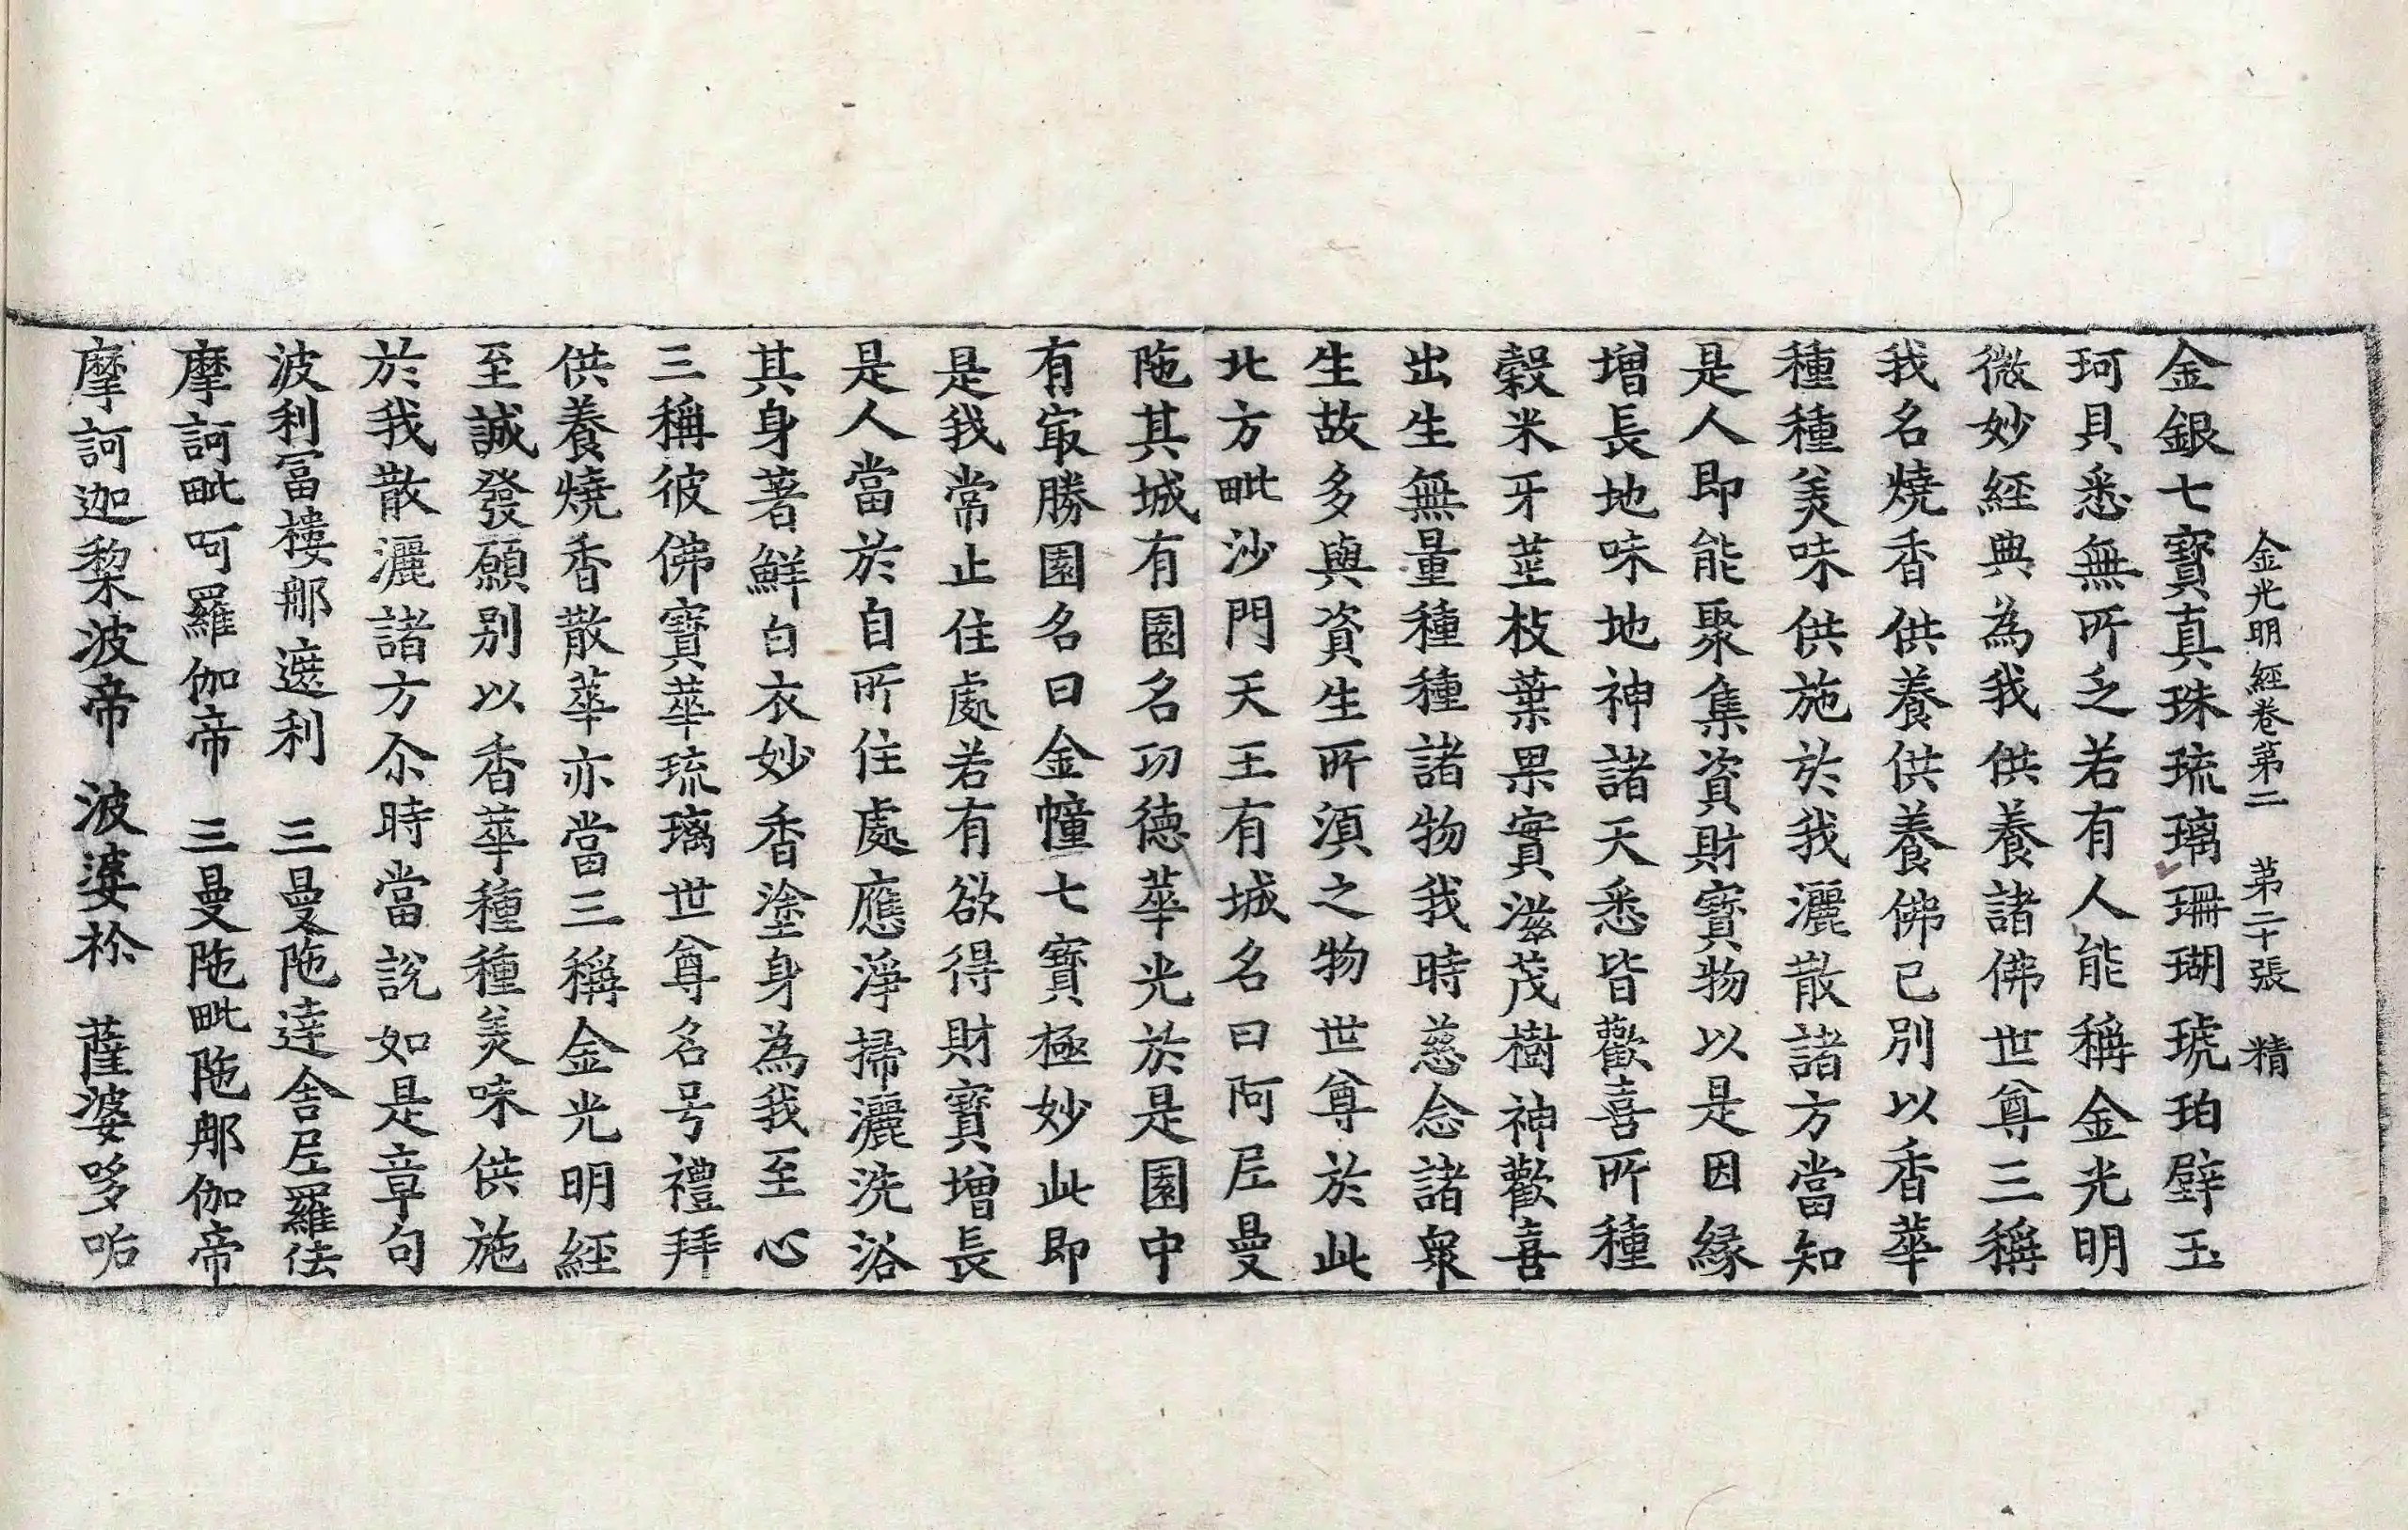 金光明經卷第二　第二十張　精
金銀七寶真珠琉璃珊瑚琥珀璧玉
珂貝悉無所乏若有人能稱金光明
微妙經典為我供養諸佛世尊三稱
我名燒香供養供養佛已別以香華
種種美味供施於我灑散諸方當知
是人即能聚集資財寶物以是因緣
增長地味地神諸天悉皆歡喜所種
穀米牙莖枝葉果實滋茂樹神歡喜
出生無量種種諸物我時慈念諸衆
生故多與資生所湏之物世尊於此
北方毗沙門天王有城名曰阿尼曼
陁其城有園名功德華光於是園中
有㝡勝園名曰金幢七寶極妙此即
是我常止住處若有欲得財寶增長
是人當於自所住處應淨掃灑洗浴
其身著鮮白衣妙香塗身為我至心
三稱彼佛寶華琉璃世尊名号禮拜
供養燒香散華亦當三稱金光明經
至誠發願別以香華種種美味供施
於我散灑諸方尒時當說如是章句
波利冨樓那遮利　三曼陁達舍尼羅佉
摩訶毗呵羅伽帝　三曼陁毗陁那伽帝
摩訶迦黎波帝　波婆祢　薩婆哆㖃